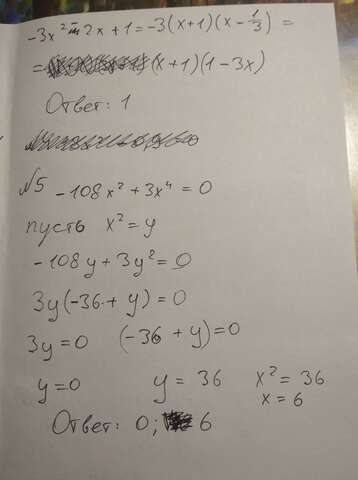 -3x² - 2x + 1 = -3(x+1)(x - 1/3) =
= (x+1)(1-3x)
Ответ: 1
№5 -108x² + 3x⁴ = 0
пусть x² = y
-108y + 3y² = 0
3y(-36 + y) = 0
3y = 0 (-36 + y) = 0
y = 0 y = 36 x² = 36
x = 6
Ответ: 0; 6